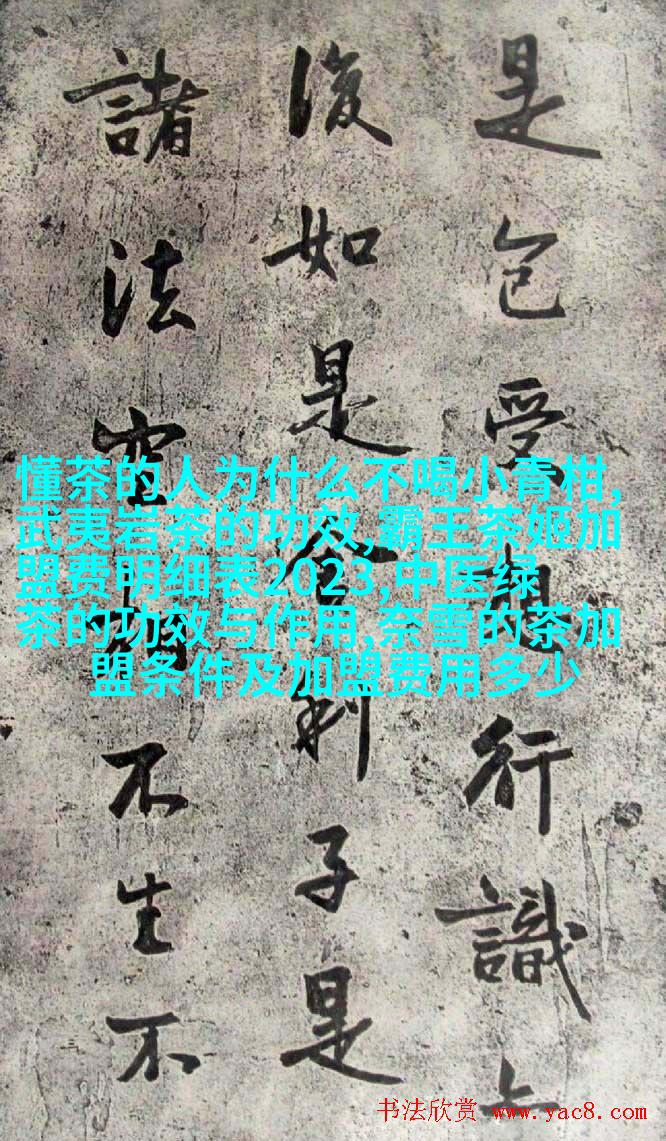 是色受行識
復如是舍利子是
諸法空不生不
懂茶的人为什么不喝小青柑,
武夷岩茶的功效,霸王茶姬加
盟费明细表2023,中医绿
茶的功效与作用,奈雪的茶加
盟条件及加盟费用多少
书法欣赏 www.yac8.com